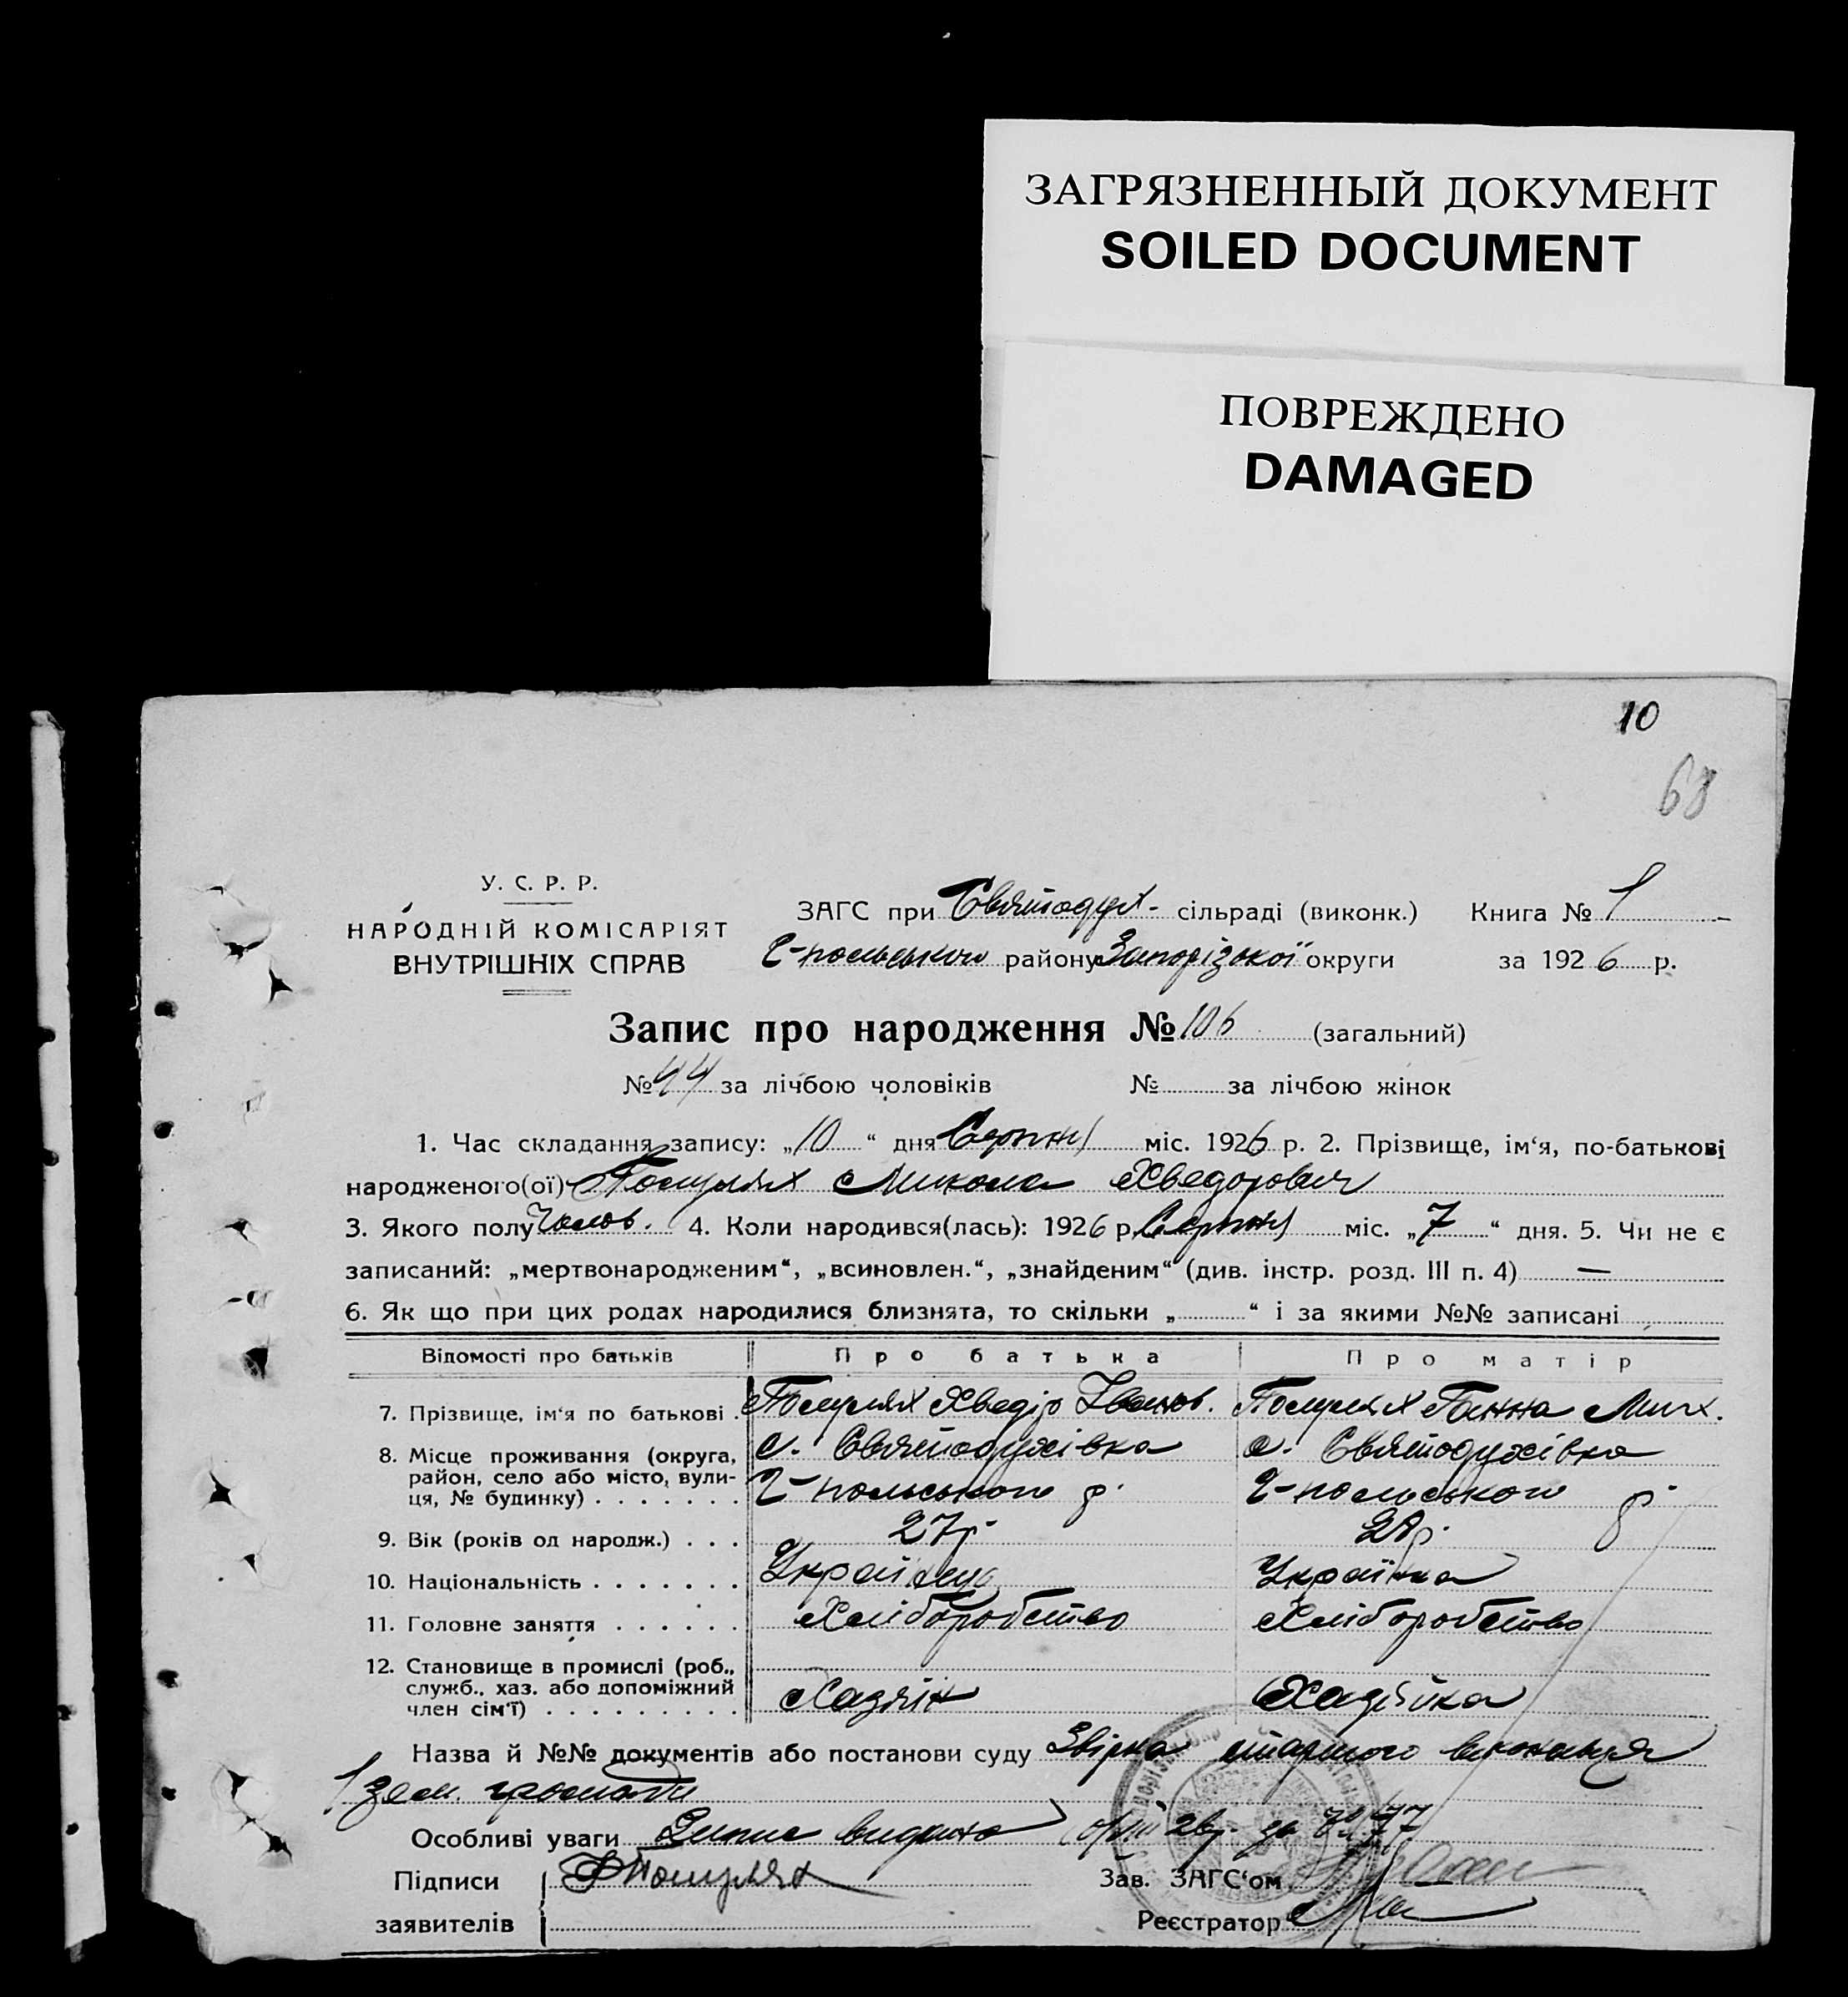 ЗАГРЯЗНЕННЫЙ ДОКУМЕНТ
SOILED DOCUMENT
ПОВРЕЖДЕНО
DAMAGED
10
68
У. С. Р. Р.
НАРОДНІЙ КОМІСАРІЯТ
ВНУТРІШНІХ СПРАВ
ЗАГС при Святодух- сільраді (виконк.) Книга № 1
Г-польського району Запорізької округи за 1926 р.
Запис про народження № 106 (загальний)
№ 44 за лічбою чоловіків № за лічбою жінок
1. Час складання запису: „10“ дня Серпня міс. 1926 р. 2. Прізвище, ім‘я, по-батькові
народженого(ої) Микола Хведорович
3. Якого полу Чолов. 4. Коли народився(лась): 1926 р. Серпня міс. „7“ дня. 5. Чи не є
записаний: „мертвонародженим“, „всиновлен.“, „знайденим“ (див. інстр. розд. III п. 4) —
6. Як що при цих родах народилися близнята, то скільки „ “ і за якими №№ записані
Відомості про батьків Про батька Про матір
7. Прізвище, ім‘я по батькові . Хведір Іванов. Ганна Мих.
8. Місце проживання (округа, с. Святодухівка с. Святодухівка
район, село або місто, вули-
ця, № будинку) . . . . . . . Г-польського р. Г-польського р.
9. Вік (років од народж.) . . . 27 р.
10. Національність . . . . . . . Українець Українка
11. Головне заняття . . . . . . Хліборобство Хліборобство
12. Становище в промислі (роб.,
служб., хаз. або допоміжний
член сім‘ї) . . . . . . . . . Хазяїн Хазяйка
Назва й №№ документів або постанови суду Звірка старшого виконавця
зем. громади
Особливі уваги видано
Підписи
заявителів
Зав. ЗАГС‘ом
Реєстратор